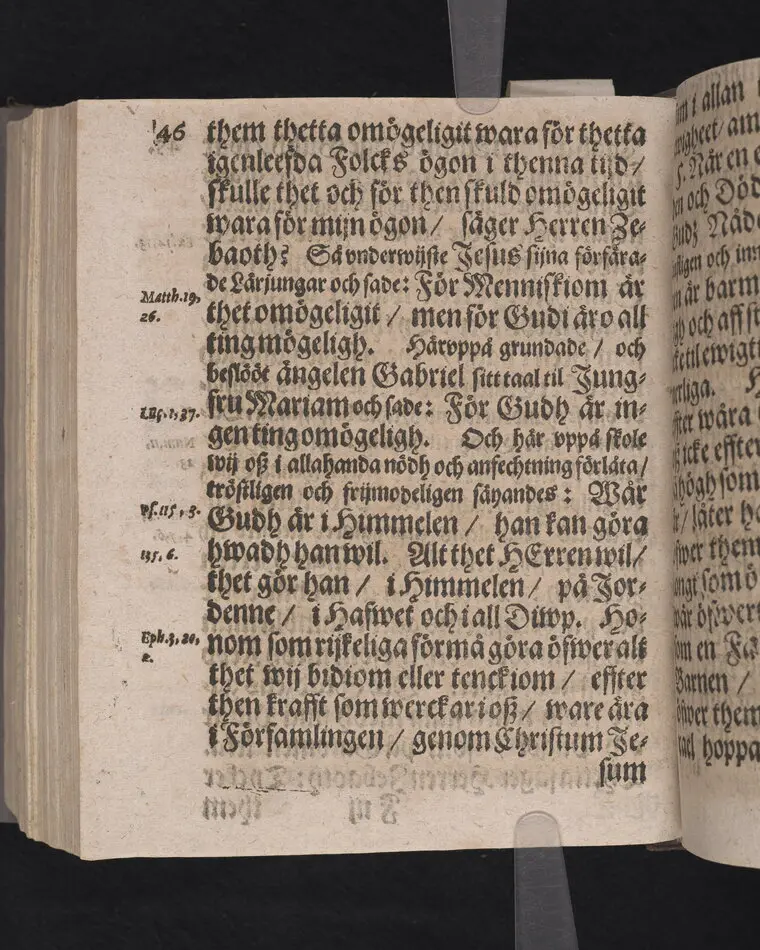 146
them thetta omögeligit wara för thetta
igenleefda Folcks ögon i thenna tijd/
skulle thet och för then skuld omögeligit
wara för mijn ögon/ säger Herren Ze-
baoth? Så vnderwijste Jesus sijna förfära-
de Lärjungar och sade: För Menniskiom är
Matth. 19, 26.
thet omögeligit / men för Gudi äro all
ting mögeligh. Häruppå grundade / och
beslööt ängelen Gabriel sitt taal til Jung-
fru Mariam och sade: För Gudh är in-
Luc. 1, 37.
gen ting omögeligh. Och här vppå skole
wij oß i allahanda nödh och anfechtning förlåta/
tröstligen och frijmodeligen säyandes: Wår
Ps. 115, 3.
Gudh är i Himmelen / han kan göra
hwadh han wil. Alt thet HErren wil/
135, 6.
thet gör han / i Himmelen / på Jor-
denne / i Hafwet och i all Diwp. Ho-
nom som rijkeliga förmå göra öfwer alt
Eph. 3, 20, 2.
thet wij bidiom eller tenckiom / effter
then krafft som werckar i oß / ware ära
i Församlingen / genom Christum Je-
sum
i allan
am
När en
och Död
Nåde
och inn
är barm
och aff
til ewigt
wåra
icke effter
som
låter
öfwer them
som
en Fa
Barnen /
öfwer them
hoppa